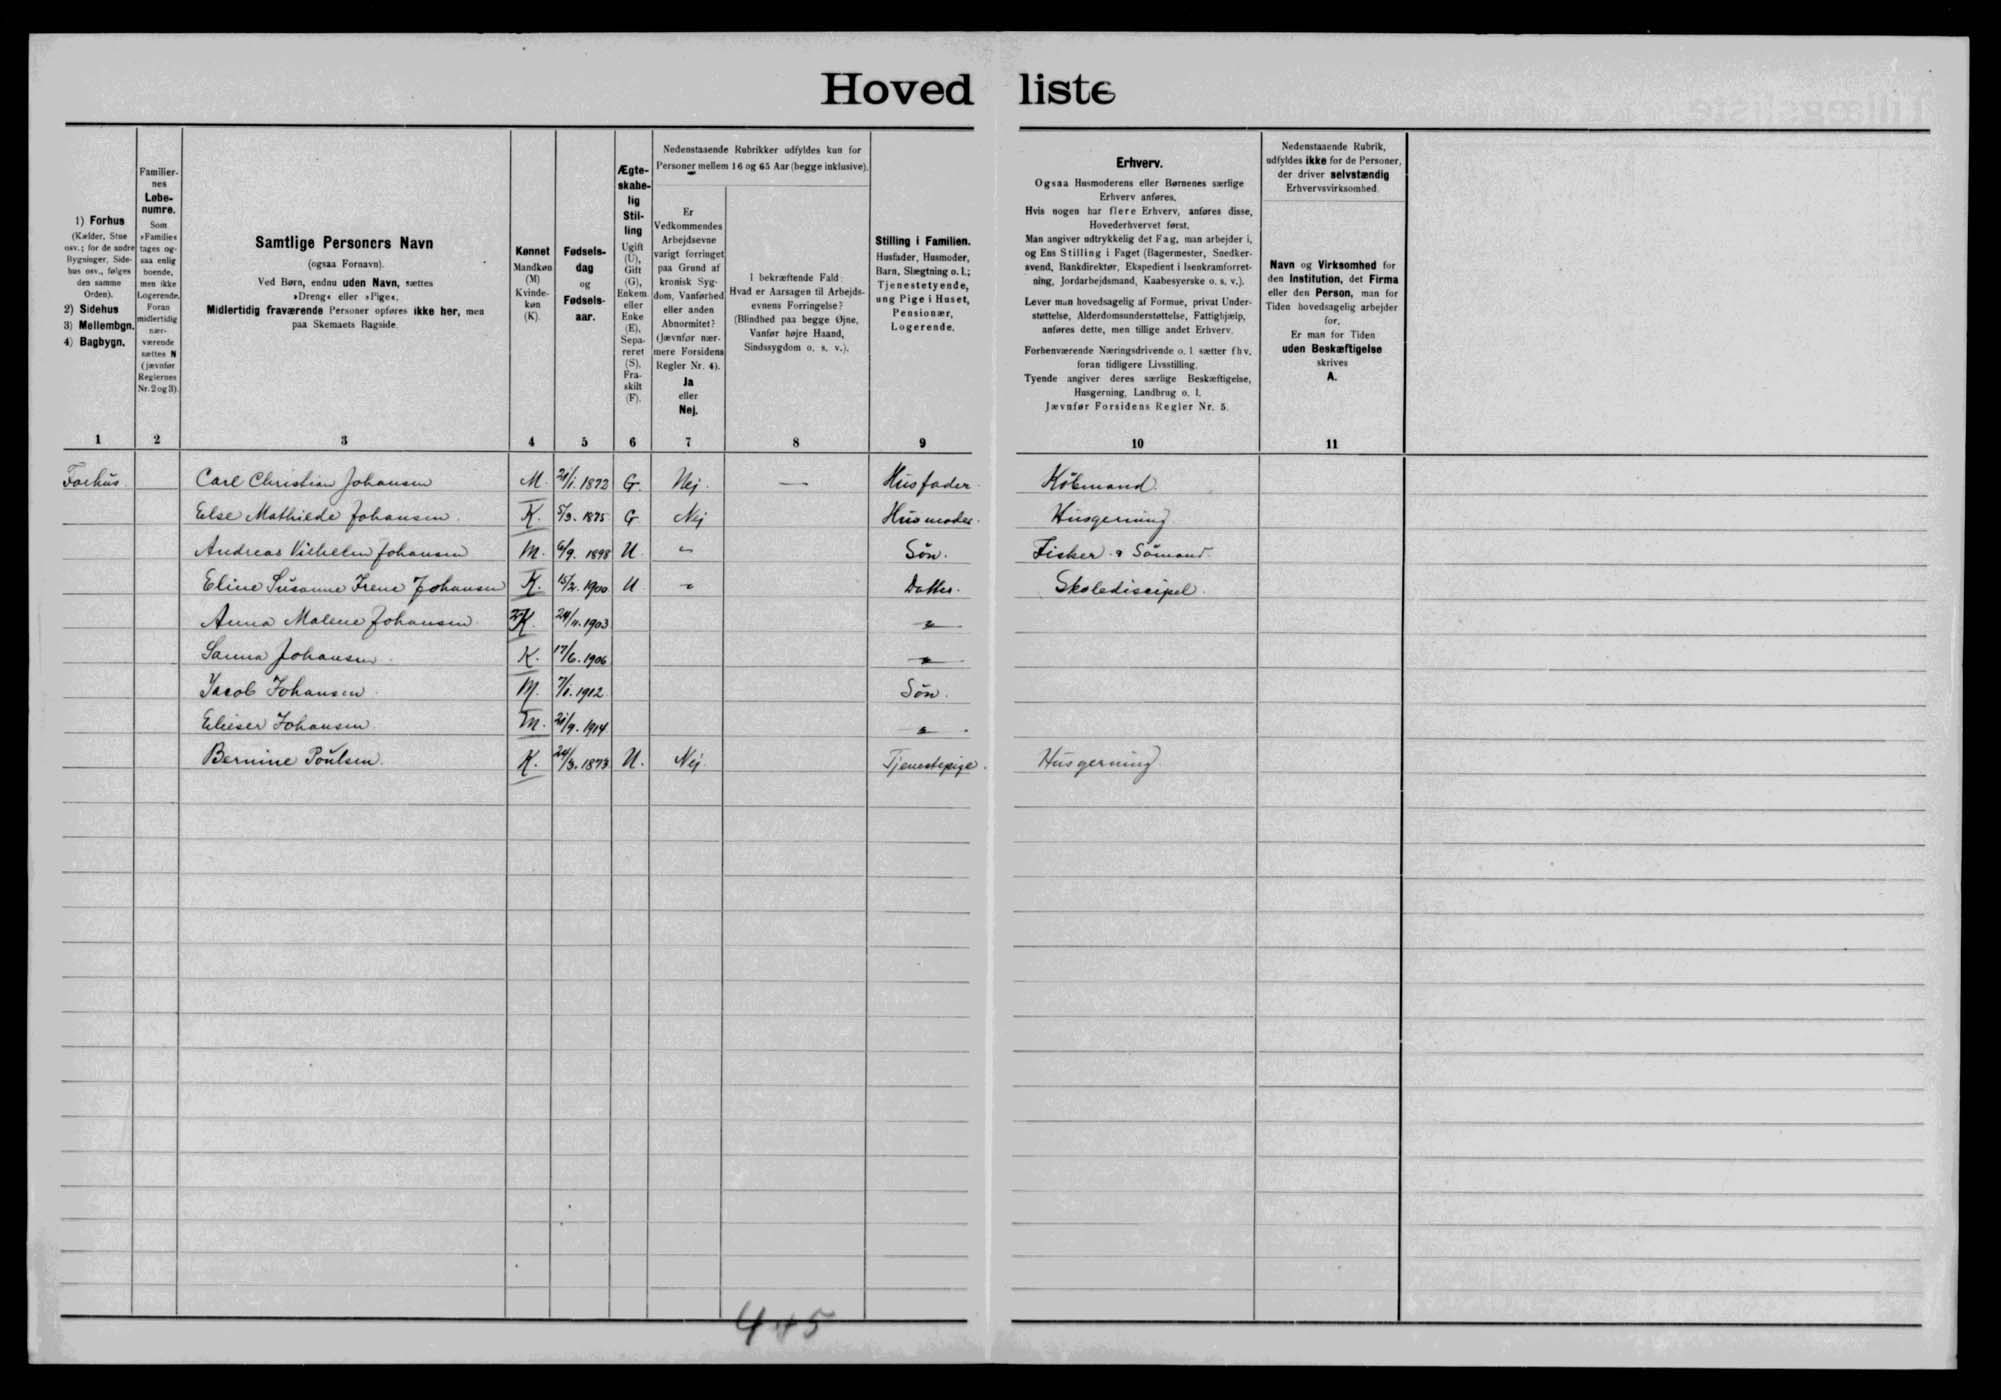 Hovedliste
1) Forhus
(Kælder, Stue
osv.; for de andre
Bygninger, Side-
hus osv., følges
den samme
Orden).
2) Sidehus
3) Mellembgn.
4) Bagbygn.
Familier-
nes
Løbe-
numre.
Som
»Familie«
tages og-
saa enlig
boende,
men ikke
Logerende.
Foran
midlertidig
nær-
værende
sættes N
(jævnfør
Reglernes
Nr. 2 og 3).
Samtlige Personers Navn
(ogsaa Fornavn).
Ved Børn, endnu uden Navn, sættes
»Dreng« eller »Pige«.
Midlertidig fraværende Personer opføres ikke her, men
paa Skemaets Bagside.
Kønnet
Mandkøn
(M)
Kvinde-
køn
(K).
Fødsels-
dag
og
Fødsels-
aar.
Ægte-
skabe-
lig
Stil-
ling
Ugift
(U),
Gift
(G),
Enkem.
eller
Enke
(E),
Sepa-
reret
(S),
Fra-
skilt
(F).
Nedenstaaende Rubrikker udfyldes kun for
Personer mellem 16 og 65 Aar (begge inklusive).
Er
Vedkommendes
Arbejdsevne
varigt forringet
paa Grund af
kronisk Syg-
dom, Vanførhed
eller anden
Abnormitet?
(Jævnfør nær-
mere Forsidens
Regler Nr. 4).
Ja
eller
Nej.
I bekræftende Fald:
Hvad er Aarsagen til Arbejds-
evnens Forringelse?
(Blindhed paa begge Øjne,
Vanfør højre Haand,
Sindssygdom o. s. v.).
Stilling i Familien.
Husfader, Husmoder,
Barn, Slægtning o. l.;
Tjenestetyende,
ung Pige i Huset,
Pensionær,
Logerende.
Erhverv.
Ogsaa Husmoderens eller Børnenes særlige
Erhverv anføres.
Hvis nogen har flere Erhverv, anføres disse,
Hovederhvervet først.
Man angiver udtrykkelig det Fag, man arbejder i,
og Ens Stilling i Faget (Bagermester, Snedker-
svend, Bankdirektør, Ekspedient i Isenkramforret-
ning, Jordarbejdsmand, Kaabesyerske o. s. v.).
Lever man hovedsagelig af Formue, privat Under-
støttelse, Alderdomsunderstøttelse, Fattighjælp,
anføres dette, men tillige andet Erhverv.
Forhenværende Næringsdrivende o. l. sætter fhv.
foran tidligere Livsstilling.
Tyende angiver deres særlige Beskæftigelse,
Husgerning, Landbrug o. l.
Jævnfør Forsidens Regler Nr. 5.
Nedenstaaende Rubrik,
udfyldes ikke for de Personer,
der driver selvstændig
Erhvervsvirksomhed.
Navn og Virksomhed for
den Institution, det Firma
eller den Person, man for
Tiden hovedsagelig arbejder
for.
Er man for Tiden
uden Beskæftigelse
skrives
A.
1 2 3 4 5 6 7 8 9 10 11
Forhus. Carl Christian Johansen M. 21/1. 1872 G. Nej. — Husfader. Købmand.
Else Mathilde Johansen. K. 5/3. 1875 G Nej Husmoder. Husgerning
Andreas Vilhelm Johansen M. 6/9. 1898 U. " Søn. Fisker. & Sømand.
Eline Susanne Irene Johansen K. 15/2. 1900 U " Datter. Skolediscipel.
Anna Malene Johansen K. 24/11. 1903 "
Sanna Johansen. K. 17/6. 1906 "
Jacob Johansen. M. 7/1. 1912 Søn.
Elieser Johansen. M. 21/9. 1914 "
Bernine Poulsen. K. 24/3. 1873 U. Nej. Tjenestepige. Husgerning.
445